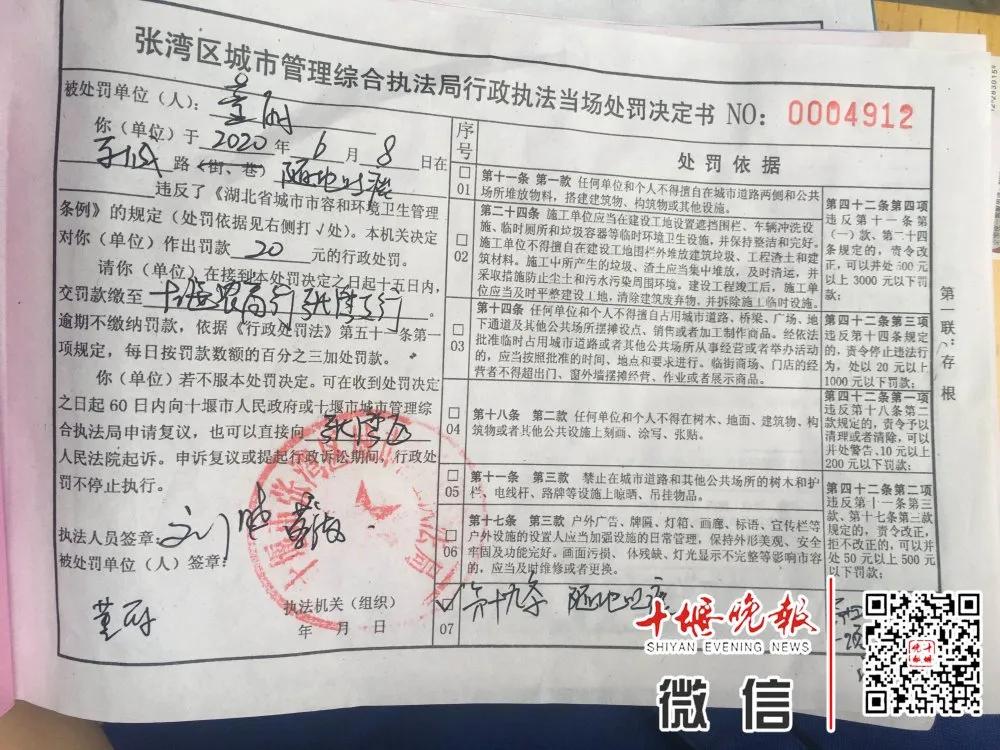 张湾区城市管理综合执法局行政执法当场处罚决定书 NO: 0004912
被处罚单位（人）：
你（单位）于 2020 年 6 月 8 日在
路（街、巷）随地吐痰
违反了《湖北省城市市容和环境卫生管理
条例》的规定（处罚依据见右侧打√处）。本机关决定
对你（单位）作出罚款 20 元的行政处罚。
请你（单位）在接到本处罚决定之日起十五日内，
交罚款缴至十堰农商行张湾支行。
逾期不缴纳罚款，依据《行政处罚法》第五十一条第一
项规定，每日按罚款数额的百分之三加处罚款。
你（单位）若不服本处罚决定。可在收到处罚决定
之日起60日内向十堰市人民政府或十堰市城市管理综
合执法局申请复议，也可以直接向 张湾区
人民法院起诉。申诉复议或提起行政诉讼期间，行政处
罚不停止执行。
执法人员签章：
被处罚单位（人）签章：
执法机关（组织）
年 月 日
序号
处罚依据
01
第十一条 第一款 任何单位和个人不得擅自在城市道路两侧和公共
场所堆放物料，搭建建筑物、构筑物或其他设施。
02
第二十四条 施工单位应当在建设工地设置遮挡围栏、车辆冲洗设
施、临时厕所和垃圾容器等临时环境卫生设施，并保持整洁和完好。
施工单位不得擅自在建设工地围栏外堆放建筑垃圾、工程渣土和建
筑材料。施工中所产生的垃圾、渣土应当集中堆放，及时清运，并
采取措施防止尘土和污水污染周围环境。建设工程竣工后，施工单
位应当及时平整建设工地，清除建筑废弃物，并拆除施工临时设施。
第四十二条 第四项
违反第十一条第
（一）款、第二十四
条规定的，责令改
正，可以并处500元
以上3000元以下罚款；
03
第十四条 任何单位和个人不得擅自占用城市道路、桥梁、广场、地
下通道及其他公共场所摆摊设点、销售或者加工制作商品。经依法
批准临时占用城市道路或者其他公共场所从事经营或者举办活动
的，应当按照批准的时间、地点和要求进行。临街商场、门店的经
营者不得超出门、窗外墙摆摊经营、作业或者展示商品。
第四十二条 第三项
违反第十四条规定
的，责令停止违法行
为，处以20元以上
1000元以下罚款；
04
第十八条 第二款 任何单位和个人不得在树木、地面、建筑物、构
筑物或者其他公共设施上刻画、涂写、张贴。
第四十二条 第一项
违反第十八条第二
款规定的，责令予以
清理或者清除，可以
并处警告、10元以上
200元以下罚款；
05
第十一条 第三款 禁止在城市道路和其他公共场所的树木和护
栏、电线杆、路牌等设施上晾晒、吊挂物品。
06
第十七条 第三款 户外广告、牌匾、灯箱、画廊、标语、宣传栏等
户外设施的设置人应当加强设施的日常管理，保持外形美观、安全
牢固及功能完好。画面污损、体残缺、灯光显示不完整等影响市容
的，应当及时维修或者更换。
第四十二条 第二项
违反第十一条第三
款、第十七条第三款
规定的，责令改正，
拒不改正的，可以并
处50元以上500元
以下罚款；
07
第十九条 随地吐痰
第一联：存根
十堰晚报
SHIYAN EVENING NEWS
微信